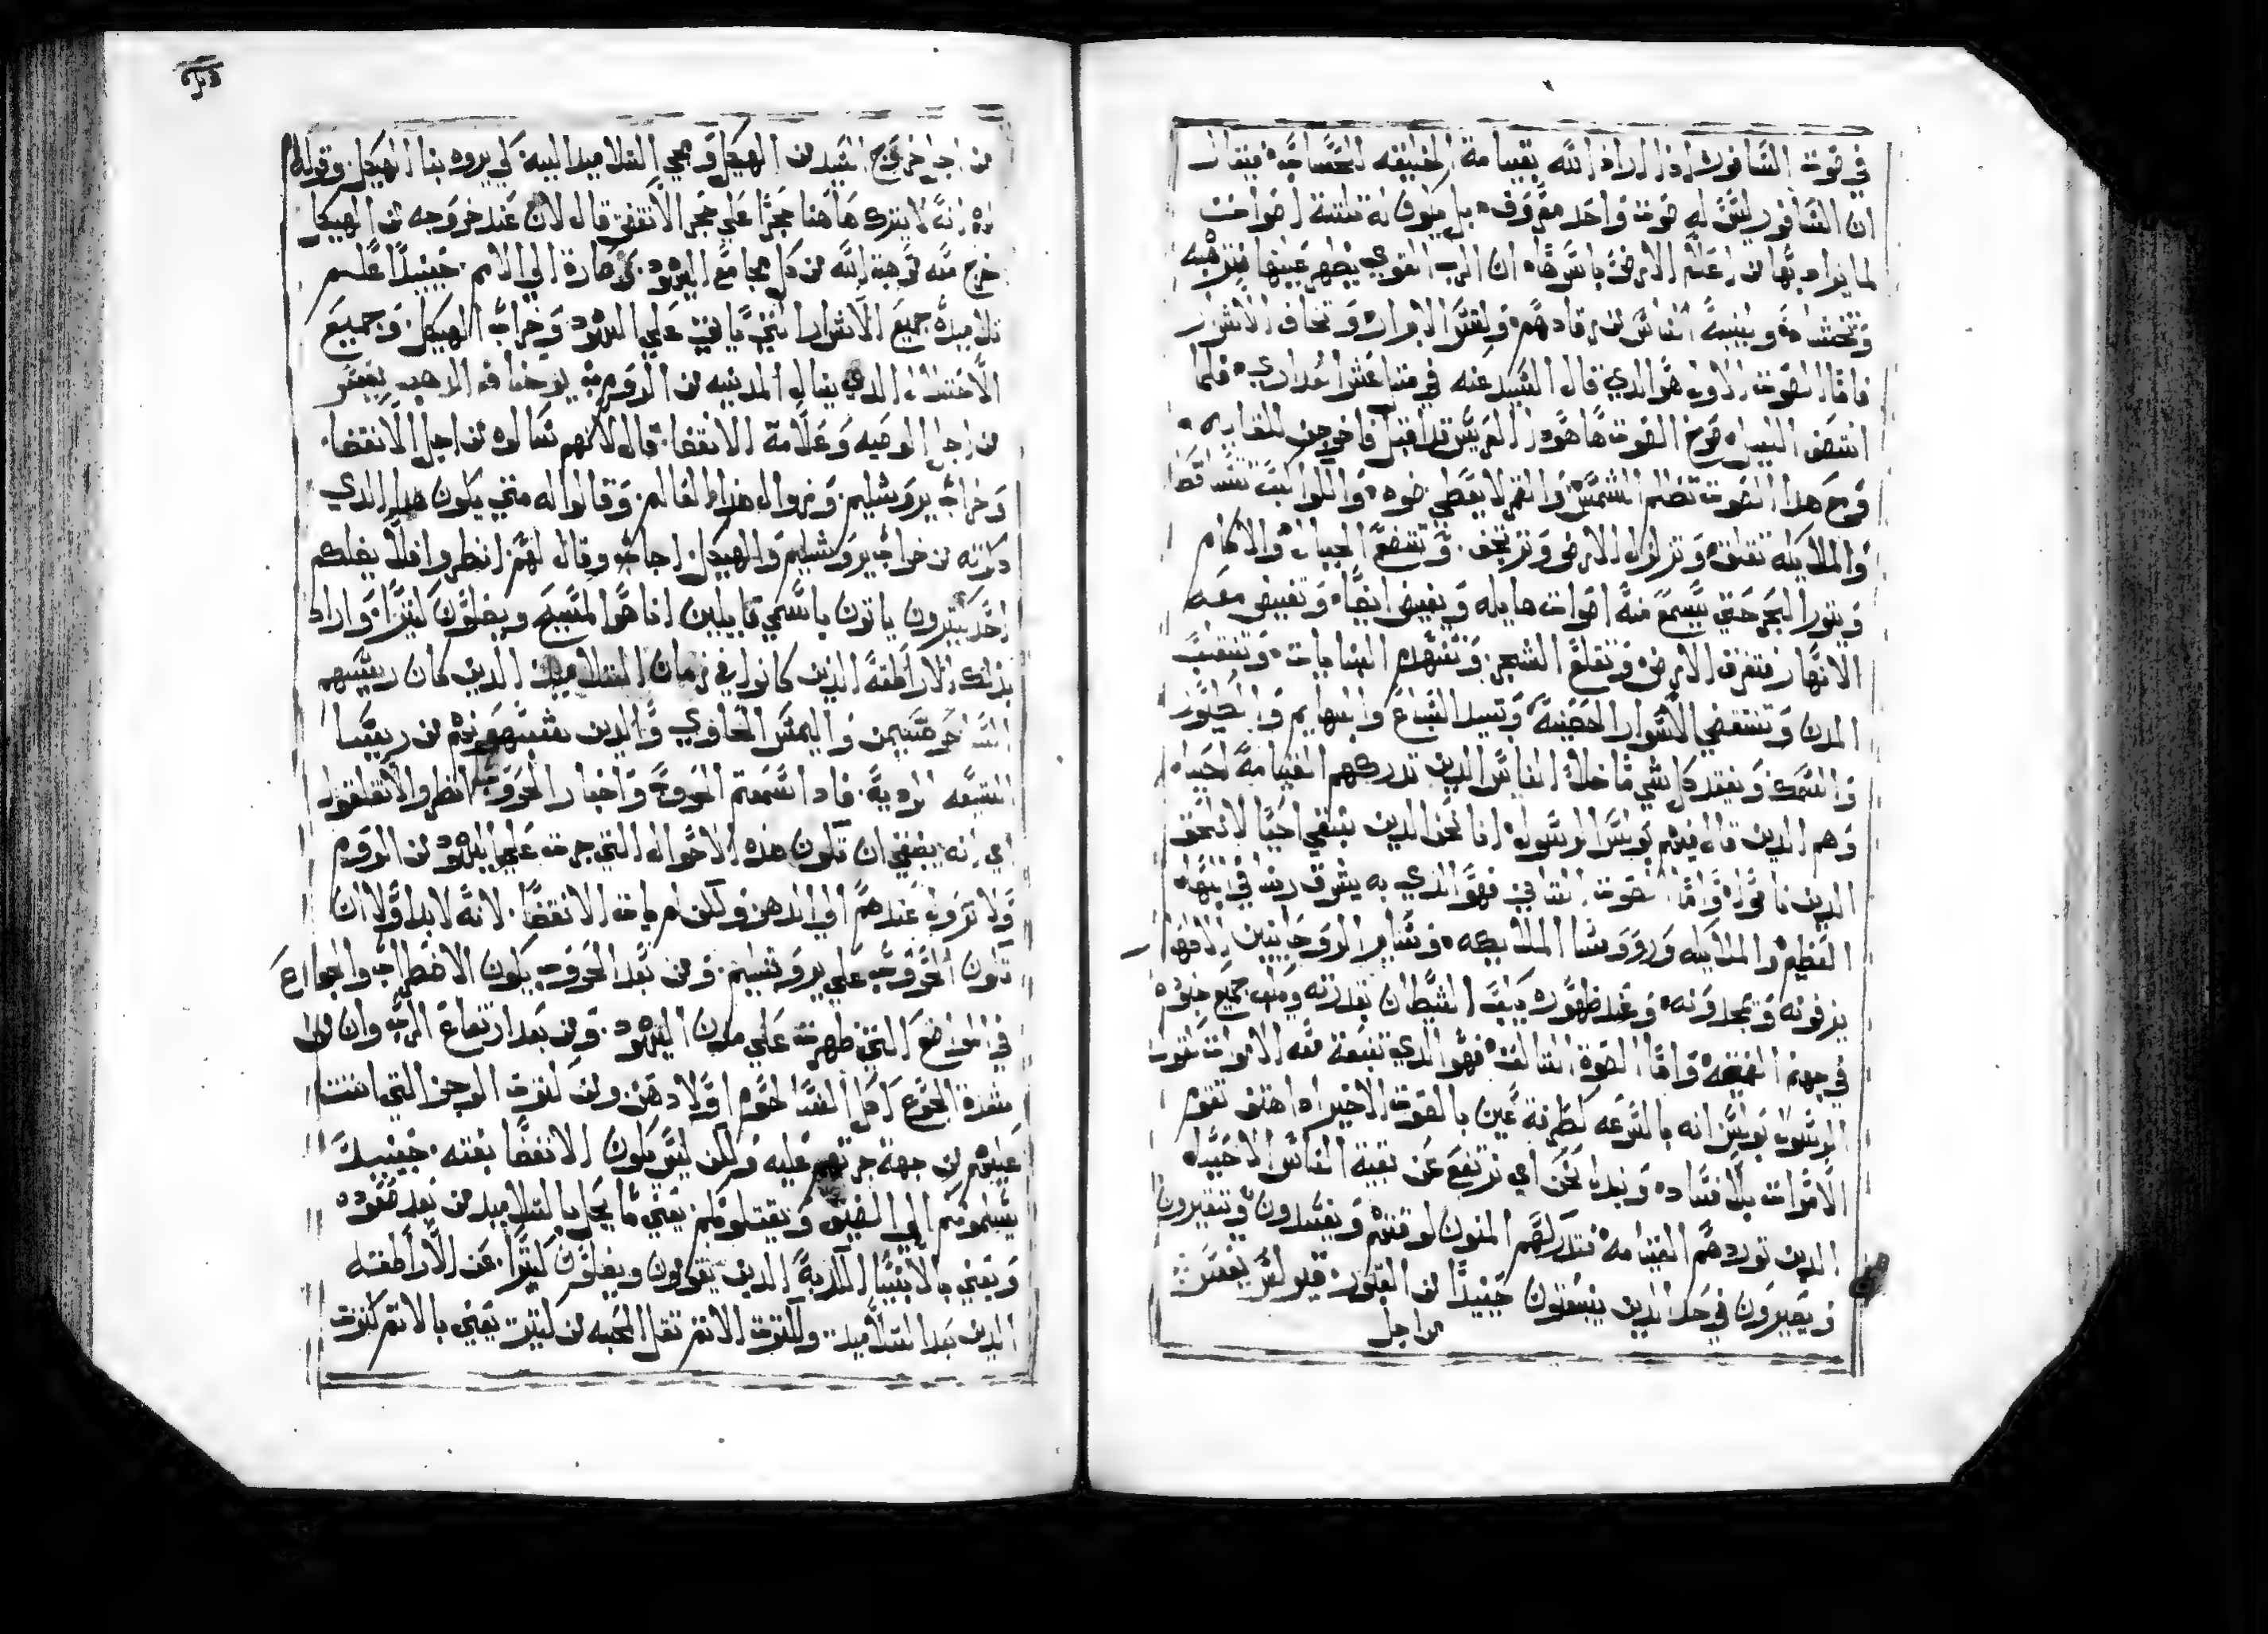 في صوت السافور اذا اراد الله بقيامة الخليقه للحساب فيقال
ان السافور ليس له صوت واحد معروف بل يكون له تلتة اصوات
لما يراد بها من اعلام الارض باسرها ان الرب القوي يظهر عليها فترهبه
وتخشاه وينبه الناس من رقادهم ولتسر الابرار وتخاف الاشرار
فاما الصوت الاول هو الدي قال السيد عنه في متل عشر عداري فلما
انتصف الليل صرخ الصوت هاهودا العريس قد اقبل فاخرجن للقايه
ومع هدا الصوت تضلم الشمس والقمر لا يعطي ضوه والكواكب تتساقط
والملايكه تقلق وتزلزل الارض وترتجف وتتضع الجبال والاكام
ويتور البحر حتي يسمع منه اصوات هايله ويفيض ايضا وتفيض معه
الانهار فتغرق الارض وتقلع الشجر وتنهدم البنايات وتنقلب
المدن وتنتقض الاسوار الحصينه وتبيد السباع والبهايم والطيور
والسمك ويفقد كل شي ما خلا الناس الدين تدركهم القيامة احيا
وهم الدين قال فيهم بولس الرسول انا نحن الدين نبقي احيا لا نلحق
الدين ماتوا واما الصوت التاني فهو الدي به يشرق ربنا في بهاه
العظيم والملايكه ورووسا الملايكه وساير الروحانيين الافقها
يزفونه ويمجدونه وعند ظهوره يكبت الشيطان بقدرته وملك جميع جنوده
في جهنم السفليه واما الصوة التالت فهو الدي تنبعت منه الاموات كقول
الرسول بولس انه بالسرعه كطرفة عين بالصوت الاخير ادا هتف تقوم
الاموات بلا فساد ونبدل نحن اي ترتفع عن بقية الناس الاحيا
الدين توردهم القيامه فتدركهم المنون لوقتهم ويفسدون ويتغيرون
ويصيرون في حد الدين ينبعتون حينيدا من القبور قيرلس يفسر
من اجل
من اجل خروج السيد من الهيكل ومجي التلاميد اليه كي يروه بنا الهيكل وقوله
له انه لا يترك هاهنا حجرا علي حجر الا نقض قال لان عند خروجه من الهيكل
خرج منه نزهة الله من كل مجامع اليهود وصارة الي الامم حينيدا علم
تلاميده جميع الاشرار التي تاتي علي اليهود وخراب الهيكل وجميع
الاختلال الدي ينال المدينه من الروم يوحنا فم الدهب يفسر
من اجل الوصيه وعلامة الانقضا قال لانهم سالوه من اجل الانقضا
وخراب يروشليم وزوال هدا العالم وقالوا له متي يكون هدا الدي
دكرته من خراب يروشليم والهيكل اجاب وقال لهم انظروا فلا يضلكم
احد كتيرون ياتون باسمي قايلين انا هو المسيح ويضلون كتيرا واراد
بدلك الاراطقه الدين كانوا في زمان التلاميد الدين كان رييسهم
الساحر سيمن واليمس الغاوي والدين يتبعهم من رييسا
الشيعه الرديه فادا سمعتم الحروب واخبار الحروب انظروا لا تقلقوا
اي انه ينبغي ان تكون هده الاحوال التي جرت علي اليهود من الروم
ولكن لم يات الانقضا لانه لابد اولا ان
تكون الحروب علي يروشليم ومن بعد الحروب يكون الاضطراب والجوع
في المواضع التي ظهرت علي مدن اليهود ومن بعد ارتفاع الرب وان من
شدة الجوع اكل النسا لحوم اولادهن ومن كترت الرجز التي اتت
عليهم من جهة جرتهم عليه ولكن ليس يكون الانقضا بغته حينيد
يسلمونكم الي الضيق ويقتلونكم يعني ما يحل بالتلاميد من بعد صعوده
ويعني بالانبيا الكدبة الدين يقولون ويضلون كتيرا عن الاراطقه
الدين بعد التلاميد ولكترت الاتم تقل المحبه من كتير يعني بالاتم كترت